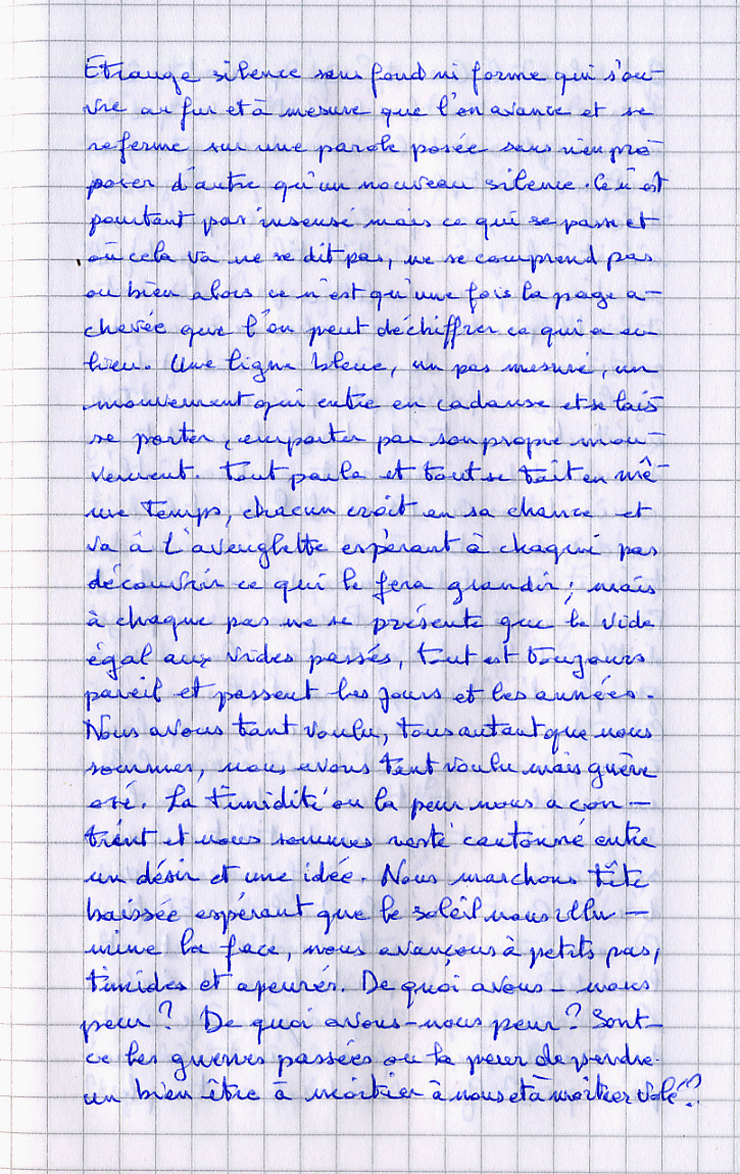 Etrange silence sans fond ni forme qui s'ou-
vre au fur et à mesure que l'on avance et se
referme sur une parole posée sans rien pro
poser d'autre qu'un nouveau silence. Ce n'est
pourtant pas insensé mais ce qui se passe et
où cela va ne se dit pas, ne se comprend pas
ou bien alors ce n'est qu'une fois la page a-
chevée que l'on peut déchiffrer ce qui a eu
lieu. Une ligne bleue, un pas mesuré, un
mouvement qui entre en cadanse et se lais
se porter, emporter par son propre mou-
vement. Tout parla et tout se tait en mê-
me temps, chacun croit en sa chance et
va à l'aveuglette espérant à chaque pas
découvrir ce qui le fera grandir; mais
à chaque pas ne se présente que le vide
égal aux vides passés, tout est toujours
pareil et passent les jours et les années.
Nous avons tant voulu, tous autant que nous
sommes, nous avons tant voulu mais guère
osé. La timidité ou la peur nous a con-
traint et nous sommes resté cantonné entre
un désir et une idée. Nous marchons tête
baissée espérant que le soleil nous illu-
mine la face, nous avançons à petits pas,
timides et apeurés. De quoi avons-nous
peur? De quoi avons-nous peur? Sont-
ce les guerres passées ou la peur de perdre
un bien être à moitier à nous et à moitier volé??